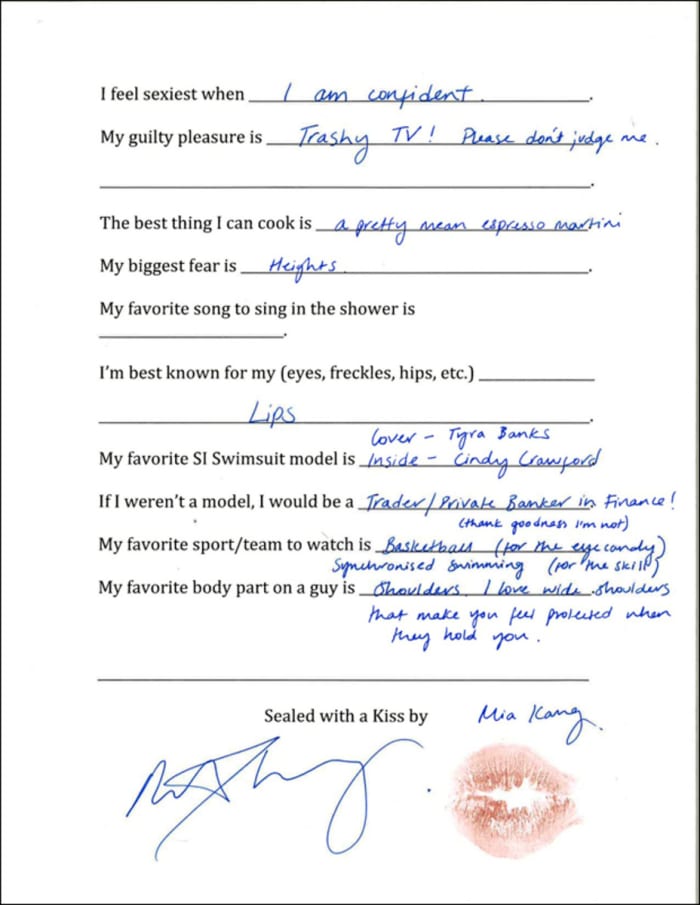 I feel sexiest when I am confident.
My guilty pleasure is Trashy TV! Please don't judge me.
.
The best thing I can cook is a pretty mean espresso martini
My biggest fear is Heights.
My favorite song to sing in the shower is
.
I'm best known for my (eyes, freckles, hips, etc.)
Lips.
Cover - Tyra Banks
My favorite SI Swimsuit model is Inside - Cindy Crawford
If I weren't a model, I would be a Trader/Private Banker in Finance!
(thank goodness I'm not)
My favorite sport/team to watch is Basketball (for the eye candy)
Synchronised Swimming (for the skill)
My favorite body part on a guy is Shoulders. I love wide shoulders
that make you feel protected when
they hold you.
Sealed with a Kiss by Mia Kang.